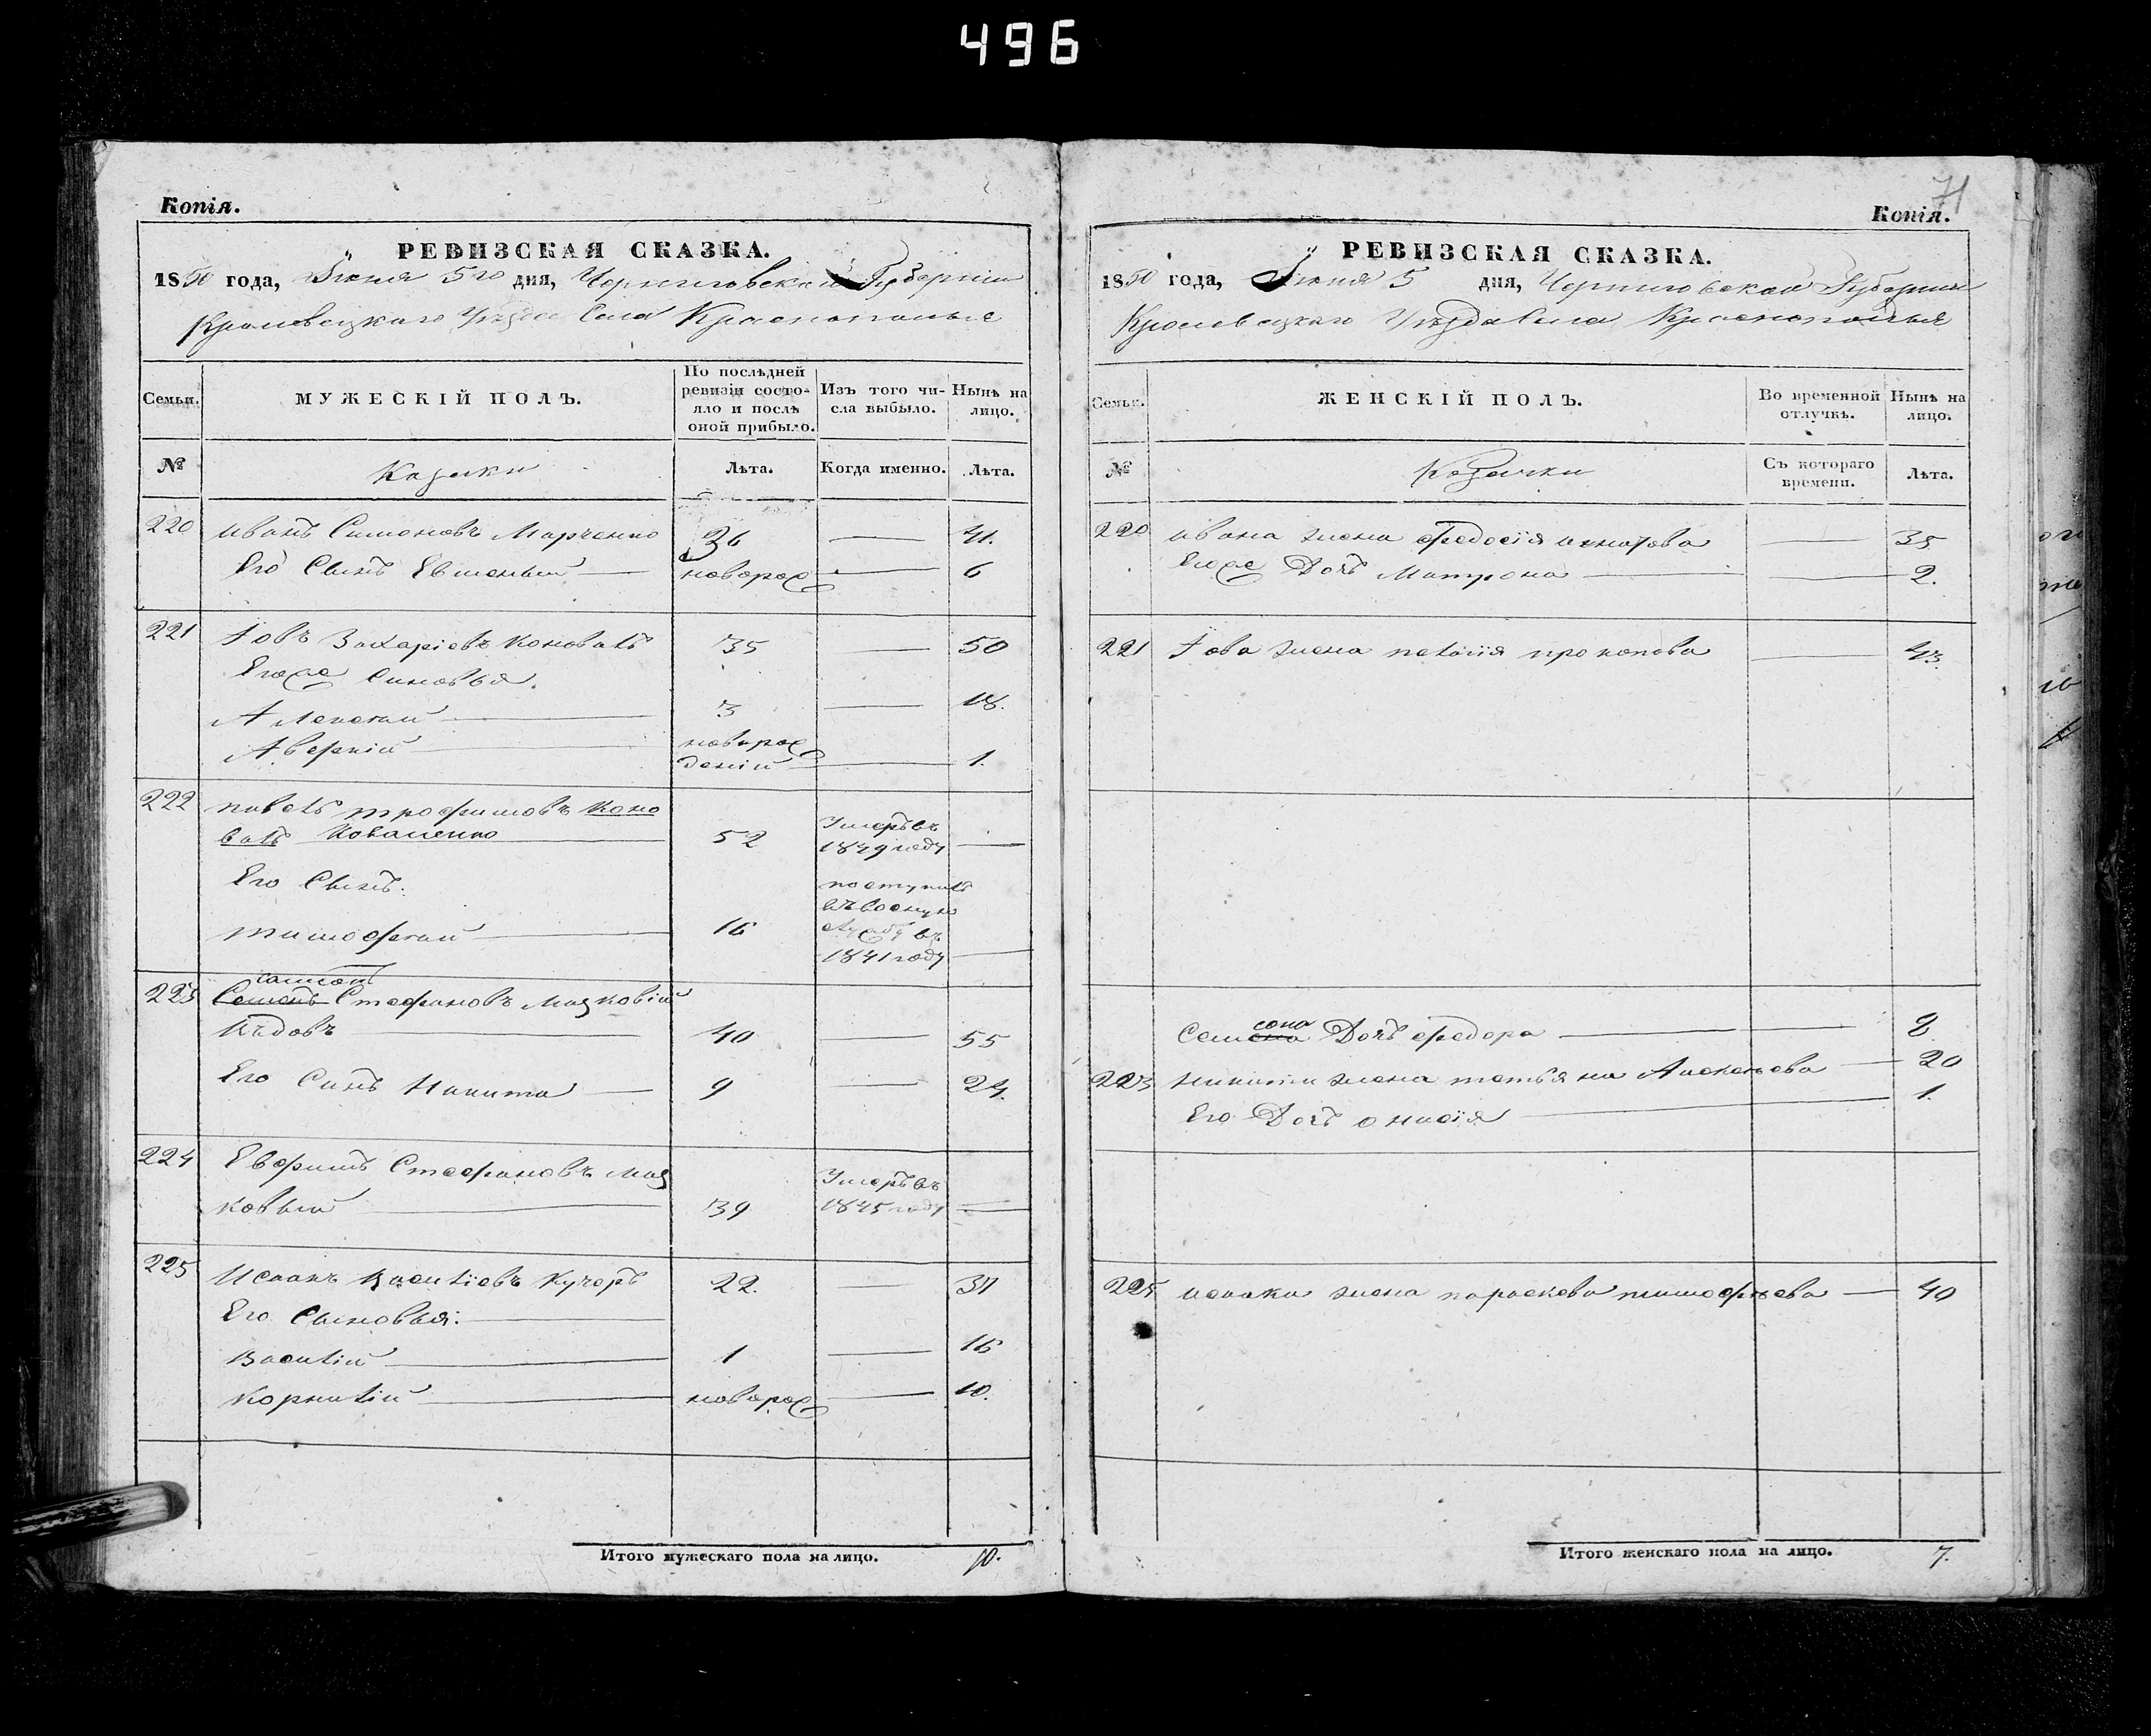 496
Копія.
РЕВИЗСКАЯ СКАЗКА.
1850 года, Іюня 5го дня, Черниговской Губерніи
Кролевецкаго Уѣзда Села Краснополье
Семьи.
МУЖЕСКІЙ ПОЛЪ.
По послѣдней ревизіи состояло и послѣ оной прибыло.
Изъ того числа выбыло.
Нынѣ на лицо.
№
Казаки
Лѣта.
Когда именно.
Лѣта.
220 иванъ Симоновъ Марченко 36 — 41.
Его Сынъ Евменый — новорож — 6
221 Іовъ Захаріевъ Коновалъ 35 — 50
Егоже Синовья.
Алексѣй — 3 — 18.
Аверкій — новорож
деній — 1.
222 павелъ трофимовъ Коно
валъ Коваленко 52 Умеръ въ 1849 году —
Его Сынъ.
тимофѣй — 16 поступилъ въ военную службу въ 1841 году —
самсонъ
223 Семенъ Стефановъ Мазковій
Дѣдовъ — 40 — 55
Его Синъ Никита — 9 — 24.
224 Евфимъ Стефановъ Маз
ковый — 39 Умеръ въ 1845 году —
225 Исаакъ Василіевъ Кучеръ 22. — 37
Его Сыновья: —
Василій — 1 — 16
Корнилій — новорож — 10.
Итого мужескаго пола на лицо. 10.
71
Копія.
РЕВИЗСКАЯ СКАЗКА.
1850 года, Іюня 5 дня, Черниговской Губерніи
Кролевецкаго Уѣзда Села Краснополья
Семьи.
ЖЕНСКІЙ ПОЛЪ.
Во временной отлучкѣ.
Нынѣ на лицо.
№
Козачки
Съ котораго времени.
Лѣта.
220 ивана жена федосія игнатова — 35
Егоже Дочъ Матрона — 2.
221 Іова жена пелагія прокопова — 43.
сона
Семена Дочъ федора — 8
223 никиты жена татьяна Алексѣева — 20
Его Дочъ онисія — 1.
225 исаака жена параскева тимофѣева — 40
Итого женскаго пола на лицо. 7.